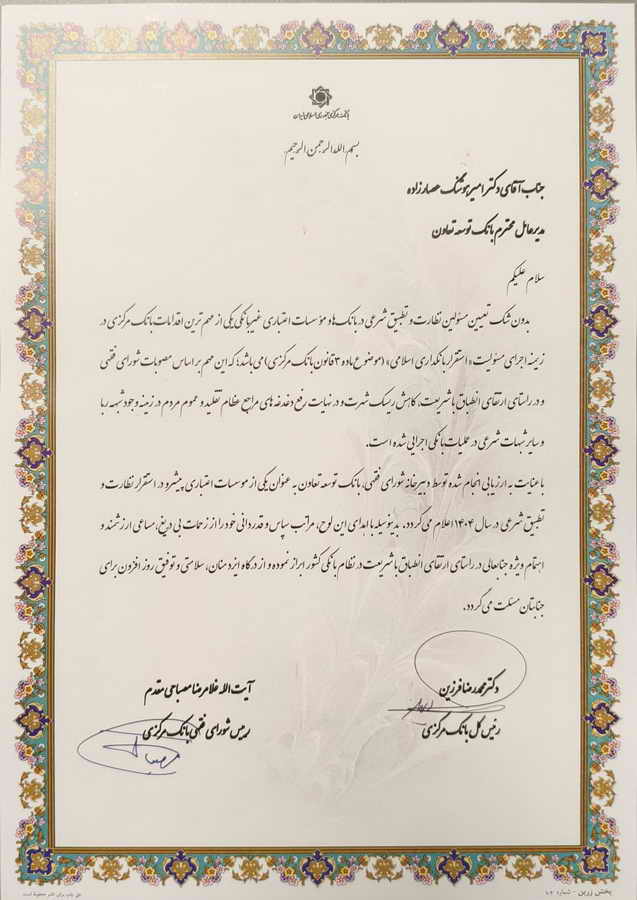 بانک مرکزی جمهوری اسلامی ایران
بسم الله الرحمن الرحیم
جناب آقای دکتر امیرهوشنگ عصارزاده
مدیرعامل محترم بانک توسعه تعاون
سلام علیکم
بدون شک تعیین مسئولین نظارت و تطبیق شرعی در بانک‌ها و مؤسسات اعتباری غیربانکی یکی از مهم ترین اقدامات بانک مرکزی در
زمینه اجرای مسئولیت «استقرار بانکداری اسلامی» (موضوع ماده ۳ قانون بانک مرکزی) می‌باشد؛ که این مهم بر اساس مصوبات شورای فقهی
و در راستای ارتقای انطباق با شریعت، کاهش ریسک شهرت و در نهایت رفع دغدغه های مراجع عظام تقلید و عموم مردم در زمینه وجود شبهه ربا
و سایر شبهات شرعی در عملیات بانکی اجرایی شده است.
با عنایت به ارزیابی انجام شده توسط دبیرخانه شورای فقهی، بانک توسعه تعاون به عنوان یکی از موسسات اعتباری پیشرو در استقرار نظارت و
تطبیق شرعی در سال ۱۴۰۴ اعلام می گردد. بدینوسیله با اهدای این لوح، مراتب سپاس و قدردانی خود را از زحمات بی دریغ، مساعی ارزشمند و
اهتمام ویژه جنابعالی در راستای ارتقای انطباق با شریعت در نظام بانکی کشور ابراز نموده و از درگاه ایزد منان، سلامتی و توفیق روز افزون برای
جنابتان مسئلت می گردد.
دکتر محمدرضا فرزین
رئیس کل بانک مرکزی
آیت اله غلامرضا مصباحی مقدم
رییس شورای فقهی بانک مرکزی
پخش زرین - شماره
حق چاپ برای ناشر محفوظ است